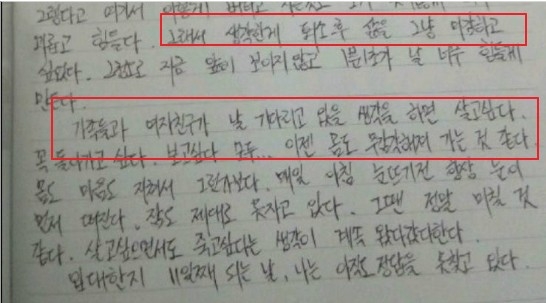 그렇다고 여기서 이렇게 버티고
괴롭고 힘들다. 그래서 생각한게 퇴소후 삶을 그냥 마감하고
싶었다. 그정도로 지금 앞이 보이지않고 1분1초가 날 너무 힘들게
만든다.
가족들과 여자친구가 날 기다리고 있을 생각을 하면 살고싶다.
꼭 돌아가고 싶다. 보고싶다 모두... 이젠 몸도 무감각해져 가는 것 같다.
몸도 마음도 지쳐서 그런가보다. 매일 아침 눈뜨기전 항상 눈이
먼저 떠진다. 잠도 제대로 못자고 있다. 그땐 정말 미칠 것
같다. 살고싶으면서도 죽고싶다는 생각이 계속 왔다갔다한다.
입대한지 11일째 되는 날, 나는 아직도 정답을 못찾고 있다.